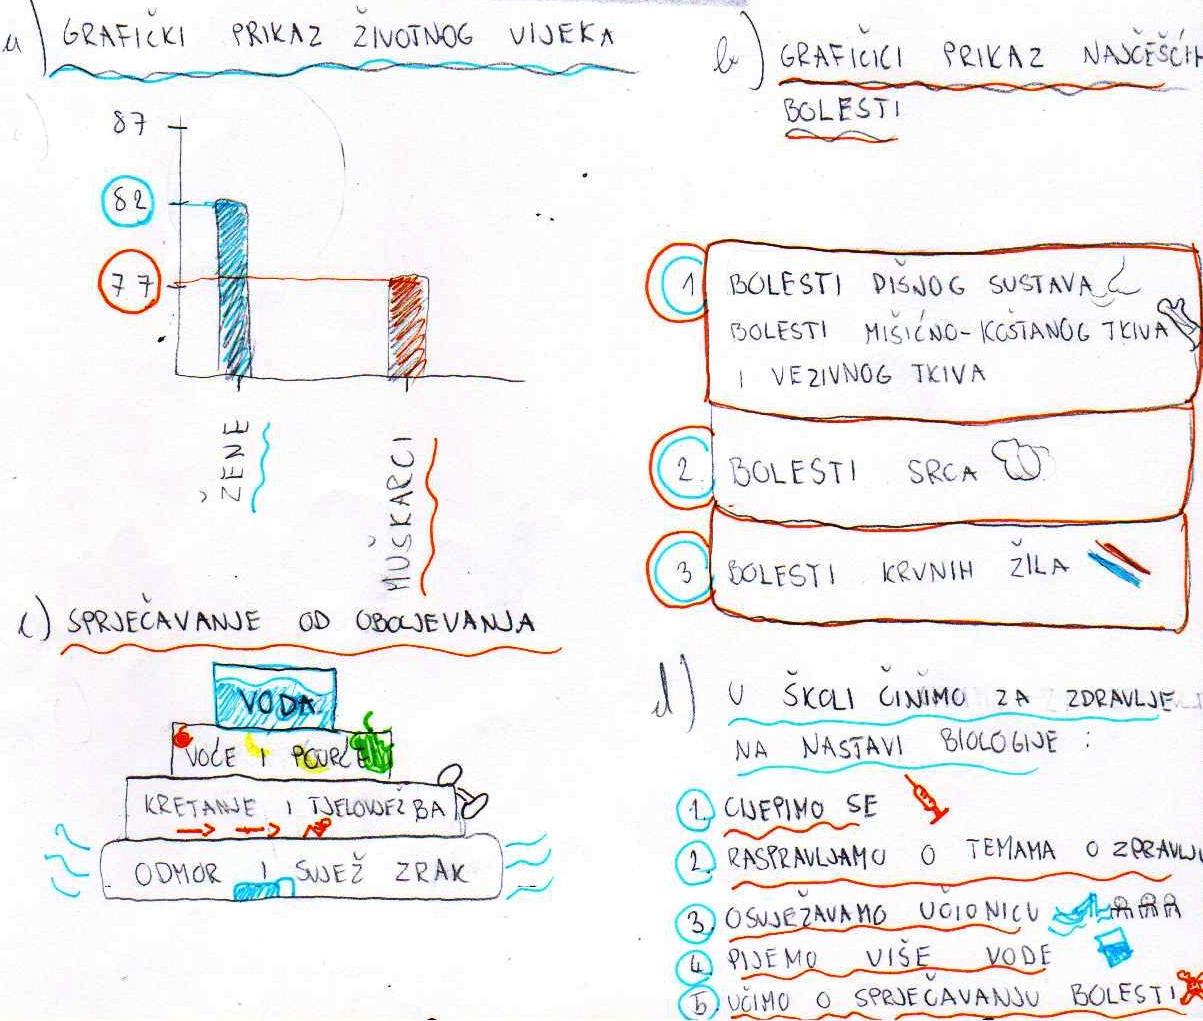 a) GRAFIČKI PRIKAZ ŽIVOTNOG VIJEKA
87
82
77
ŽENE
MUŠKARCI
b) GRAFIČICI PRIKAZ NAJČEŠĆIH
BOLESTI
1 BOLESTI DIŠNOG SUSTAVA
BOLESTI MIŠIĆNO-KOŠTANOG TKIVA
I VEZIVNOG TKIVA
2. BOLESTI SRCA
3 BOLESTI KRVNIH ŽILA
c) SPRJEČAVANJE OD OBOLJEVANJA
VODA
VOĆE I POVRĆE
KRETANJE I TJELOVJEŽBA
ODMOR I SVJEŽ ZRAK
d) U ŠKOLI ČINIMO ZA ZDRAVLJE
NA NASTAVI BIOLOGIJE :
1. CIJEPIMO SE
2. RASPRAVLJAMO O TEMAMA O ZDRAVLJU
3 OSVJEŽAVAMO UČIONICU
4 PIJEMO VIŠE VODE
5. UČIMO O SPRJEČAVANJU BOLESTI